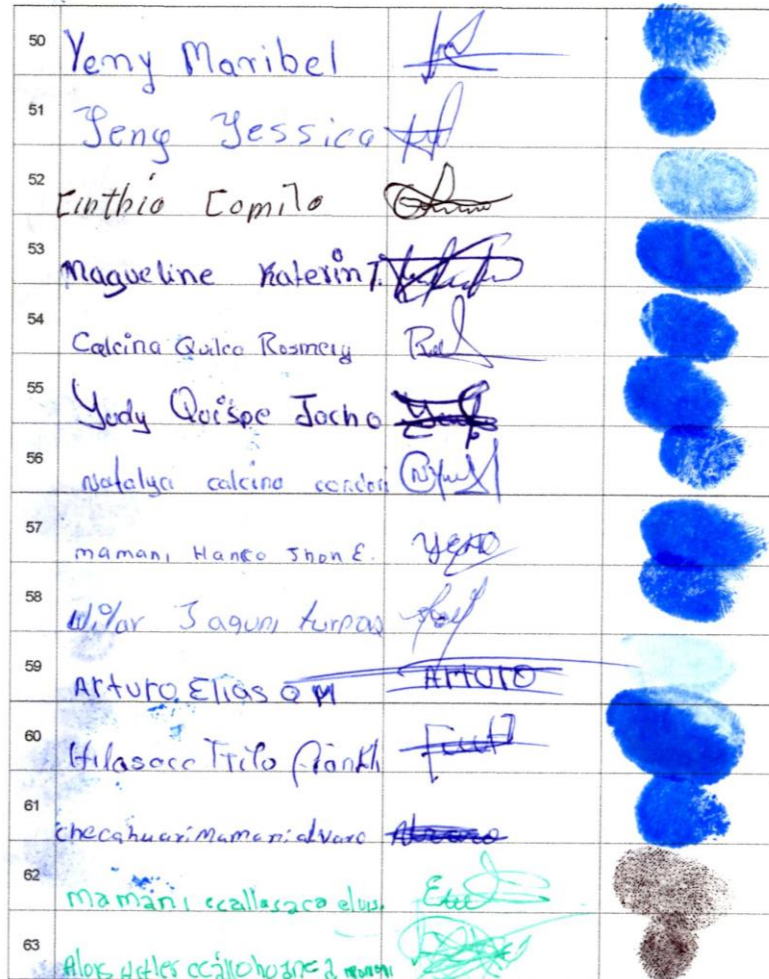 50 Yemy Maribel
51 Yeny Yessica
52 Cinthia Camila
53 Maqueline Katerin T.
54 Calcina Quilca Rosmery Ros
55 Yudy Quispe Jocho Yudy
56 Natalya calcina condori
57 mamani Hanco Jhon E. yeno
58 Wilar Jaguni turpo
59 Arturo Elias Q M Arturo
60 Hilasaca Ttito
61 checahuari Mamani alvaro Alvaro
62 mamani ccallasaca elvis
63 Alois Hitler mamani